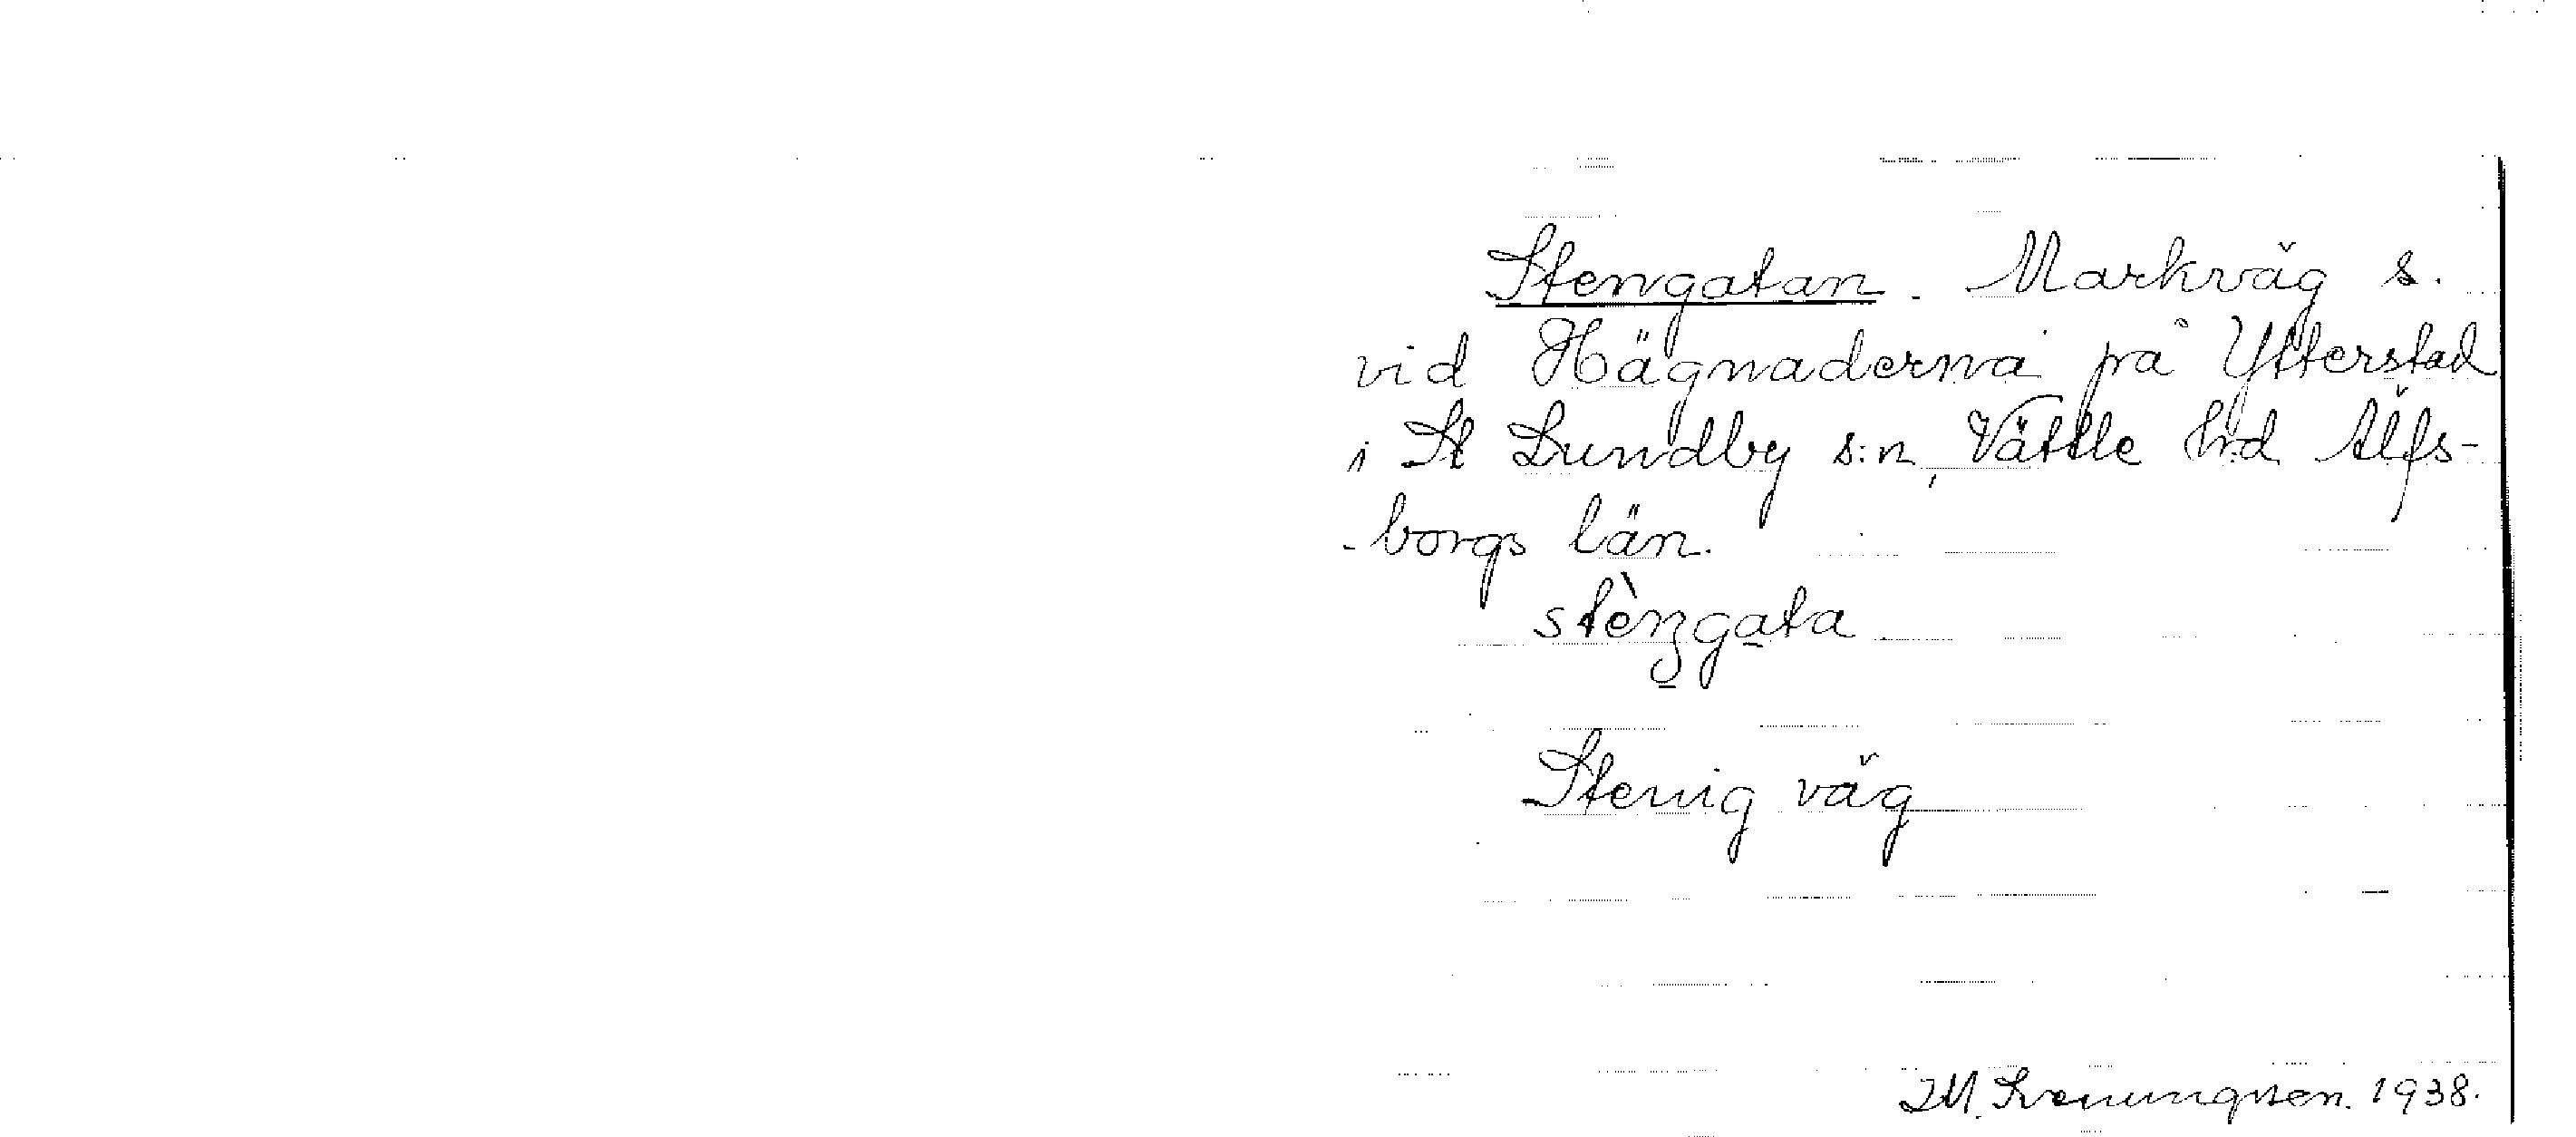 Stengatan. Markväg s.
vid Hägnaderna på Ytterstad
i St Lundby s:n, Vättle hd Älfs-
-borgs län.
stèngata
Stenig väg
1938.